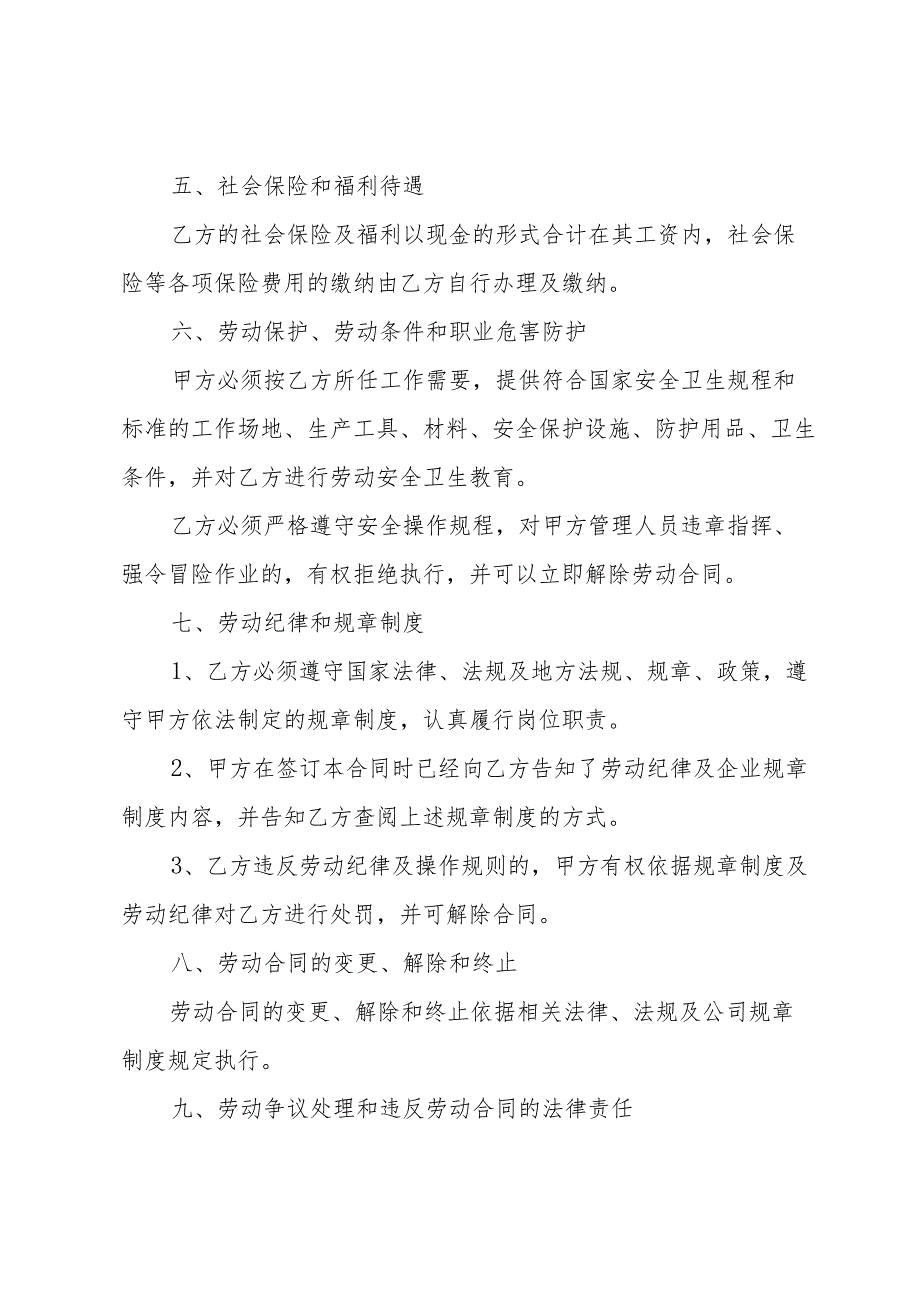 五、社会保险和福利待遇
乙方的社会保险及福利以现金的形式合计在其工资内，社会保
险等各项保险费用的缴纳由乙方自行办理及缴纳。
六、劳动保护、劳动条件和职业危害防护
甲方必须按乙方所任工作需要，提供符合国家安全卫生规程和
标准的工作场地、生产工具、材料、安全保护设施、防护用品、卫生
条件，并对乙方进行劳动安全卫生教育。
乙方必须严格遵守安全操作规程，对甲方管理人员违章指挥、
强令冒险作业的，有权拒绝执行，并可以立即解除劳动合同。
七、劳动纪律和规章制度
1、乙方必须遵守国家法律、法规及地方法规、规章、政策，遵
守甲方依法制定的规章制度，认真履行岗位职责。
2、甲方在签订本合同时已经向乙方告知了劳动纪律及企业规章
制度内容，并告知乙方查阅上述规章制度的方式。
3、乙方违反劳动纪律及操作规则的，甲方有权依据规章制度及
劳动纪律对乙方进行处罚，并可解除合同。
八、劳动合同的变更、解除和终止
劳动合同的变更、解除和终止依据相关法律、法规及公司规章
制度规定执行。
九、劳动争议处理和违反劳动合同的法律责任